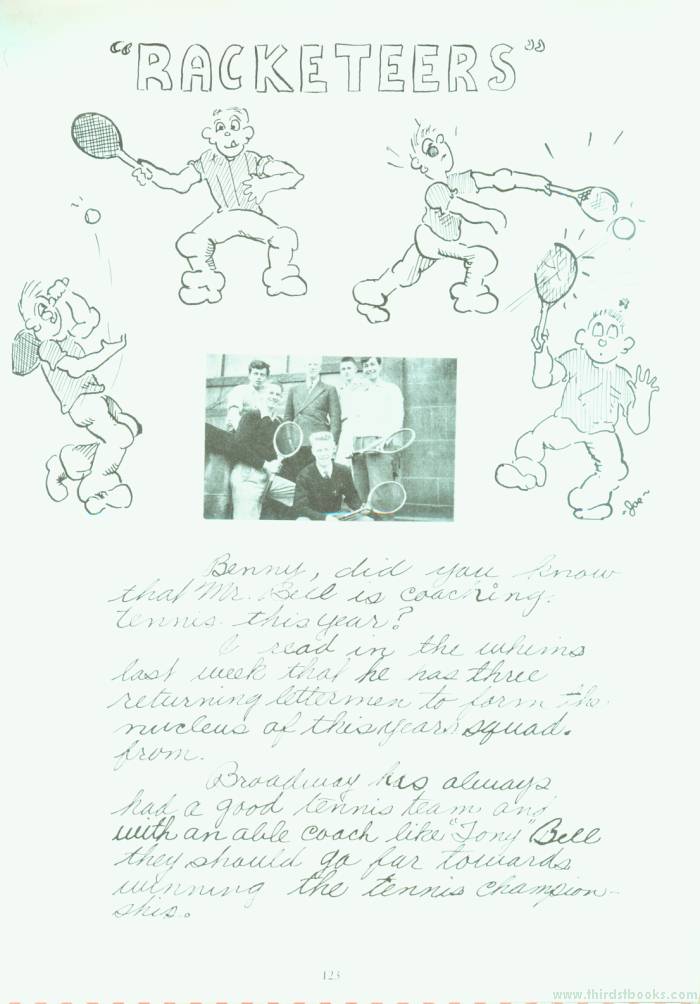 "RACKETEERS"
"Joe"
Benny, did you know
that Mr. Bell is coaching
tennis this year?
I read in the whims
last week that he has three
returning lettermen to form the
nucleus of this years squad.
from.
Broadway has always
had a good tennis team and
with an able coach like "Tony" Bell
they should go far towards
winning the tennis champion-
ship.
123
www.thirdstbooks.com